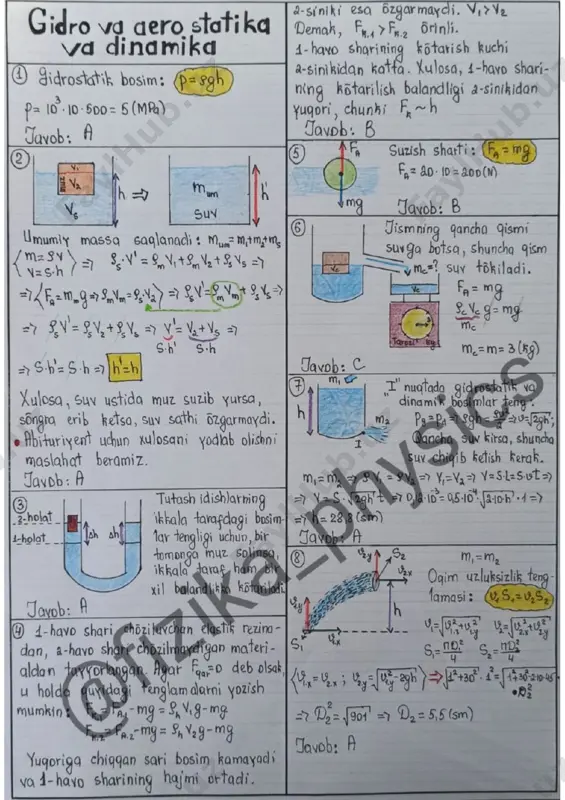 Gidro va aero statika
va dinamika
① Gidrostatik bosim: p=ρgh
p=10³·10·500=5(MPa)
Javob: A
②
V₁
V₂
V₅
h
⇒
m_um
suv
h'
Umumiy massa saqlanadi: m_um=m₁+m₂+m₅
m=ρV
V=S·h
⇒ ρ₅·V'=ρₘV₁+ρₘV₂+ρ₅V₅ ⇒
⇒ρ₅V'=ρ₅V₂+ρ₅V₅ ⇒ V'=V₂+V₅ ⇒
S·h' S·h
⇒ S·h'=S·h ⇒ h'=h
Xulosa, suv ustida muz suzib yursa,
so'ngra erib ketsa, suv sathi o'zgarmaydi.
•Abituriyent uchun xulosani yodlab olishni
maslahat beramiz.
Javob: A
③
2-holat
1-holat
Δh
Δh
Tutash idishlarning
ikkala tarafdagi bosim-
lar tengligi uchun, bir
tomonga muz solinsa,
ikkala taraf ham bir
xil balandlikka ko'tariladi
Javob: A
④ 1-havo shari cho'ziluvchan elastik rezina-
dan, 2-havo shari cho'zilmaydigan materi-
aldan tayyorlangan. Agar F=0 deb olsak,
u holda quyidagi tenglamalarni yozish
mumkin:
-mg=ρₕV₁g-mg
-mg=ρₕV₂g-mg
Yuqoriga chiqqan sari bosim kamayadi
va 1-havo sharining hajmi ortadi.
2-siniki esa o'zgarmaydi. V₁>V₂
Demak, Fₖ.₁>Fₖ.₂ o'rinli.
1-havo sharining ko'tarish kuchi
2-sinikidan katta. Xulosa, 1-havo shari-
ning ko'tarilish balandligi 2-sinikidan
yuqori, chunki Fₖ~h
Javob: B
⑤
F_A
mg
Suzish sharti: F_A=mg
F_A=20·10=200(N)
Javob: B
⑥ Jismning qancha qismi
suvga botsa, shuncha qism
m_c=? suv to'kiladi.
F_A=mg
ρ_cV_cg=mg
m_c
m_c=m=3(kg)
Javob: C
⑦
m₁
h
m₂
I
"I" nuqtada gidrostatik va
dinamik bosimlar teng:
Qancha suv kirsa, shuncha
suv chiqib ketish kerak.
m₁=m₂ ⇒ ρV₁=ρV₂ ⇒ V₁=V₂ ⇒ V=S·L=S·υt⇒
⇒ h=28,8(sm)
Javob: A
⑧
S₁
S₂
υₓ
υᵧ
υₓ
υᵧ
h
m₁=m₂
Oqim uzluksizlik teng-
lamasi: υ₁S₁=υ₂S₂
S₁=πD₁²/4 S₂=πD₂²/4
⇒ D₂²=√901 ⇒ D₂=5,5(sm)
Javob: A
@fizika_physics